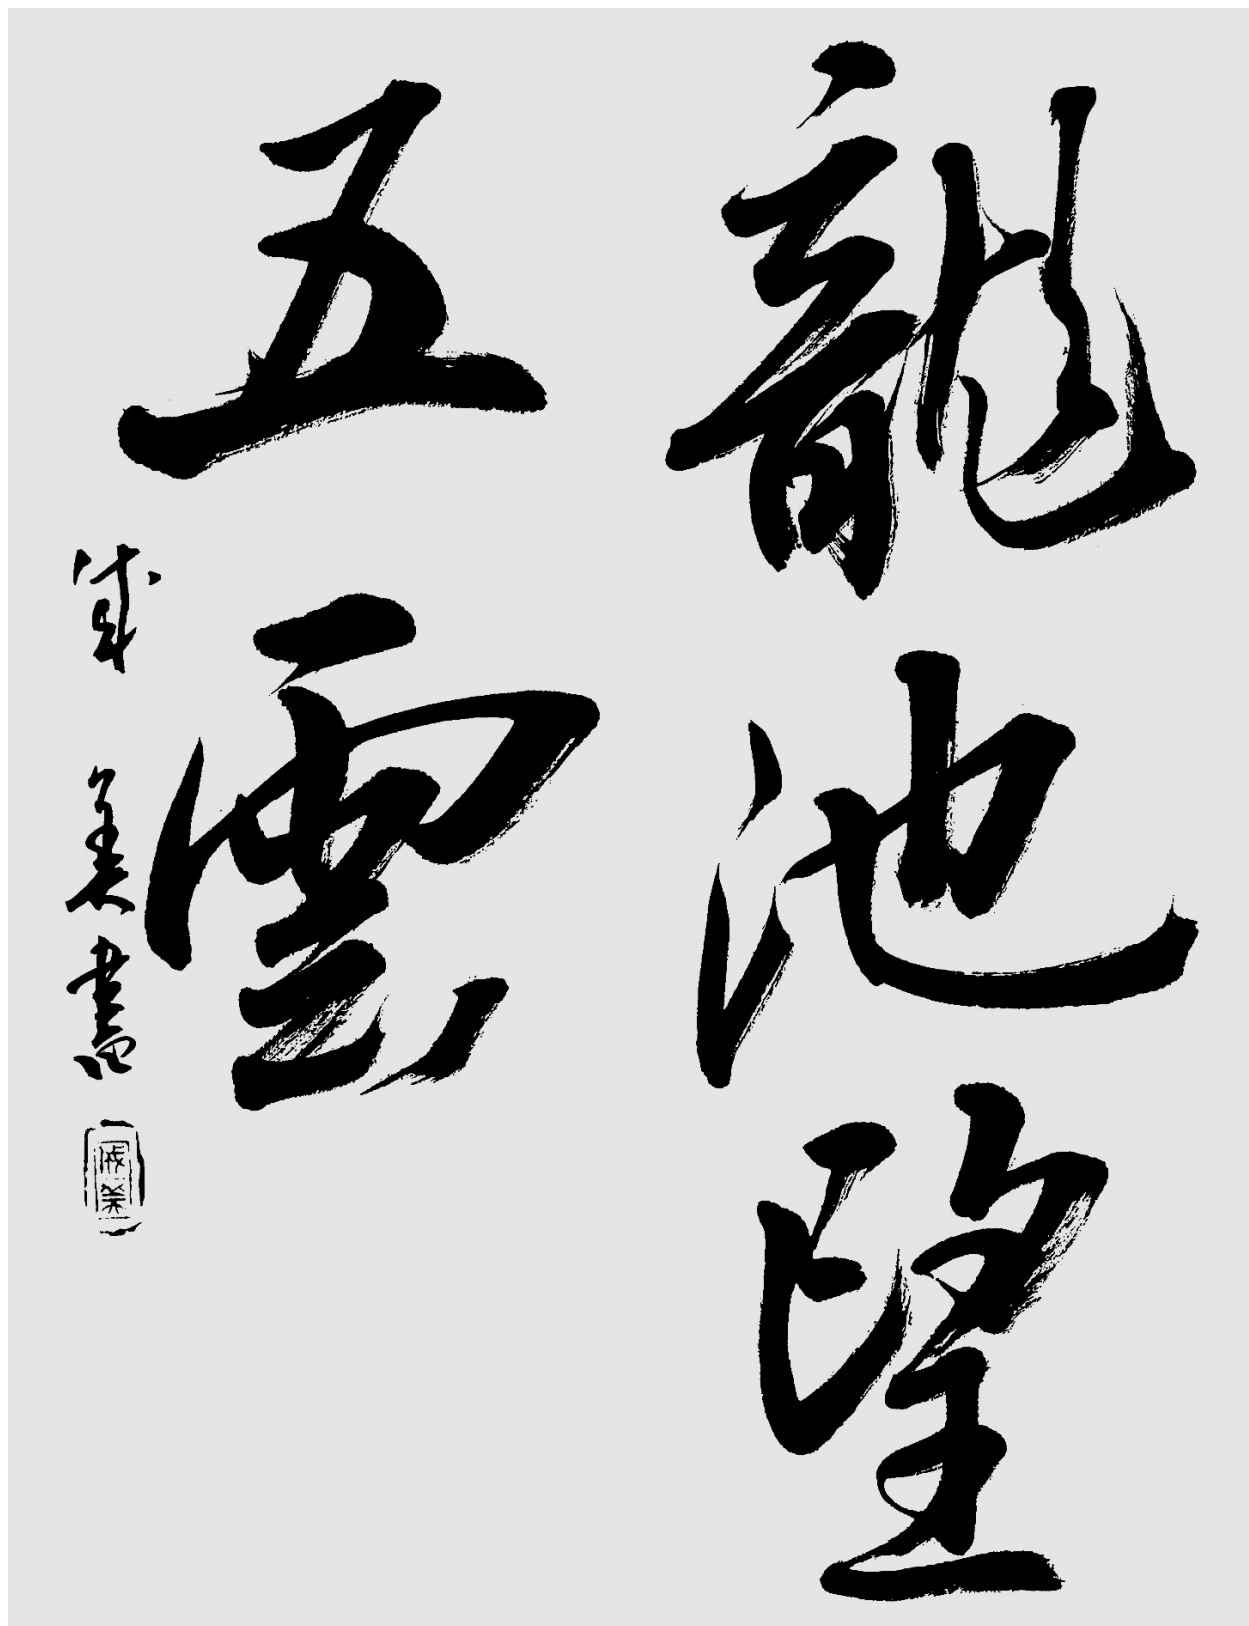 龍池望
五雲
成美書
成美